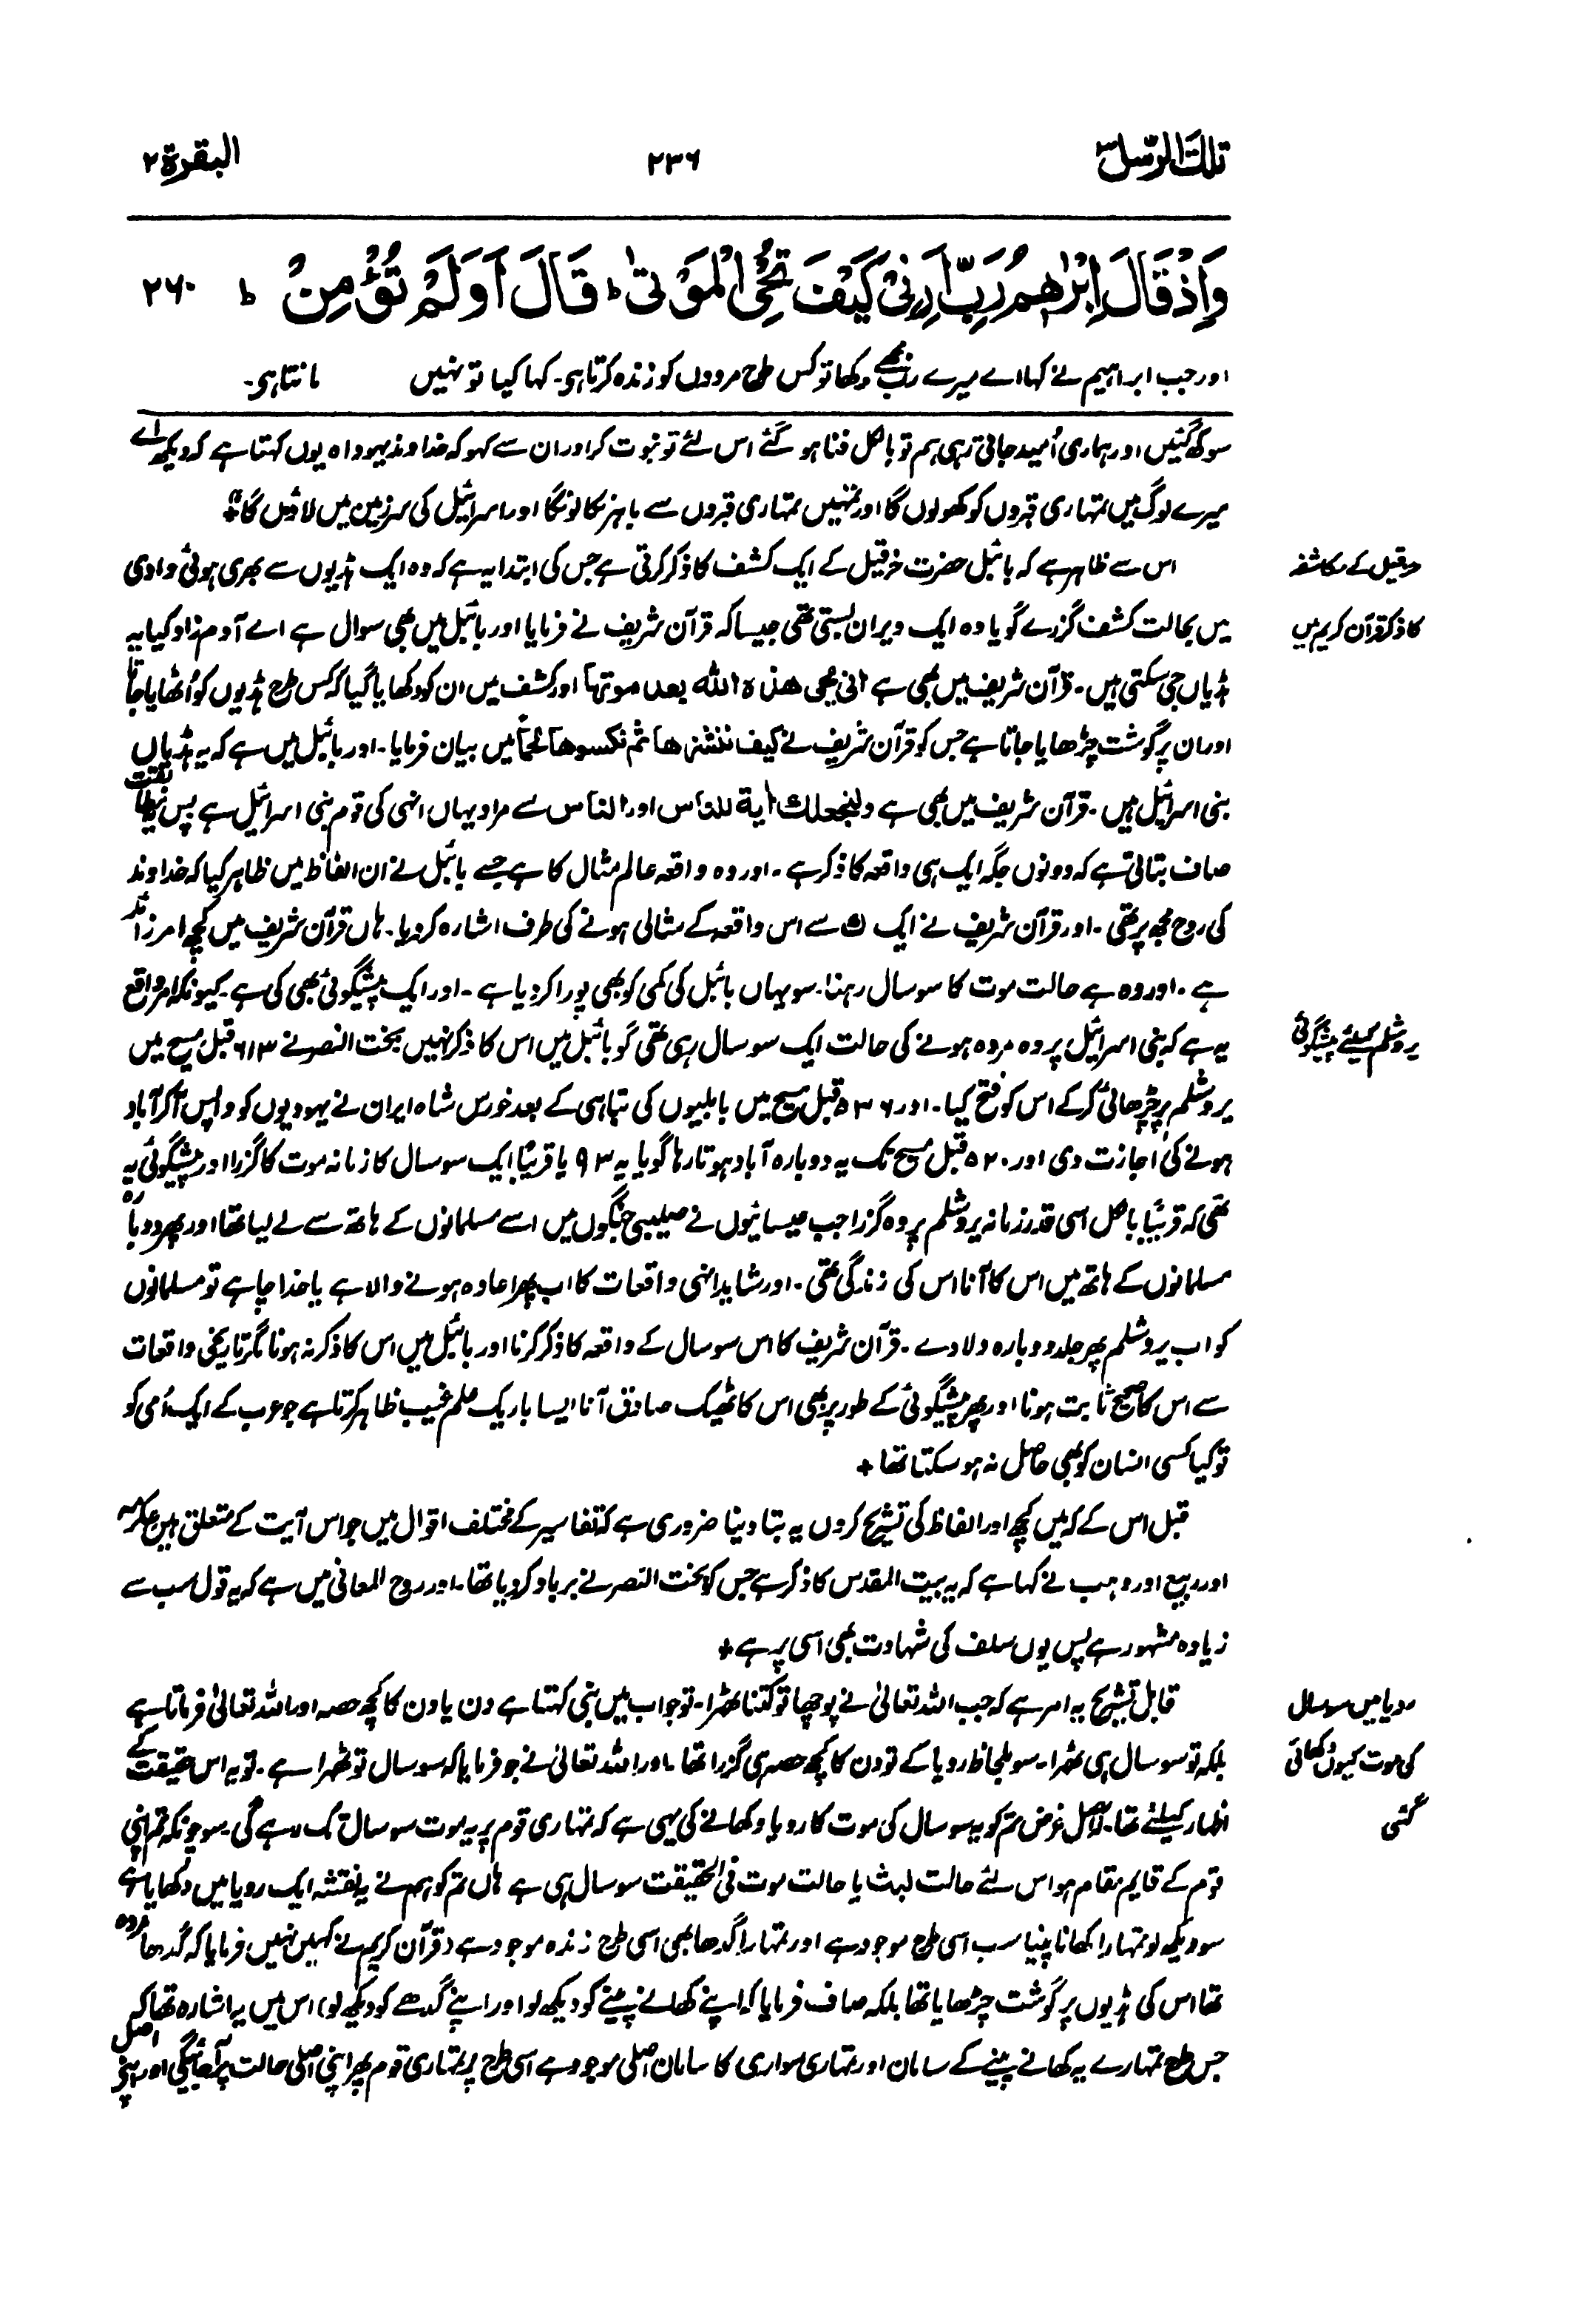 تلك الرسل ۳
۲۳۶
البقرة ۲
وَاِذْ قَالَ اِبْرٰهٖمُ رَبِّ اَرِنِیْ كَیْفَ تُحْیِ الْمَوْتٰی ؕ قَالَ اَوَلَمْ تُؤْمِنْ ؕ ۲۶۰
اور جب ابراہیم نے کہا اے میرے رب مجھے دکھا تو کس طرح مردوں کو زندہ کرتا ہی۔ کہا کیا تو نہیں مانتا ہی۔
سوکھ گئیں اور ہماری اُمید جاتی رہی ہم تو بالکل فنا ہو گئے اس لئے تو نبوت کر اور ان سے کہو کہ خداوند یہوواہ یوں کہتا ہے کہ دیکھ اے
میرے لوگ میں تمہاری قبروں کو کھولوں گا اور تمہیں تمہاری قبروں سے باہر نکالونگا اور اسرائیل کی سرزمین میں لاؤں گا"+
حزقیل کے مکاشفہ
اس سے ظاہر ہے کہ بائبل حضرت حزقیل کے ایک کشف کا ذکر کرتی ہے جس کی ابتدا یہ ہے کہ وہ ایک ہڈیوں سے بھری ہوئی وادی
کا ذکر قرآن کریم میں
میں بحالت کشف گزرے گویا وہ ایک ویران بستی تھی جیسا کہ قرآن شریف نے فرمایا اور بائبل میں بھی سوال ہے اے آدم زاد کیا یہ
ہڈیاں جی سکتی ہیں۔ قرآن شریف میں بھی ہے انی یحی هذه الله بعد موتها اور کشف میں ان کو دکھایا گیا کہ کس طرح ہڈیوں کو اُٹھایا جاتا
اور ان پر گوشت چڑھایا جاتا ہے جس کو قرآن شریف نے کیف ننشزها ثم نکسوها لحماً میں بیان فرمایا۔ اور بائبل میں ہے کہ یہ ہڈیاں
بنی اسرائیل ہیں۔ قرآن شریف میں بھی ہے ولنجعلك اٰیة للناس اور الناس سے مراد یہاں انہی کی قوم بنی اسرائیل ہے پس یہ مطابقت
صاف بتاتی ہے کہ دونوں جگہ ایک ہی واقعہ کا ذکر ہے۔ اور وہ واقعہ عالم مثال کا ہے جسے بائبل نے ان الفاظ میں ظاہر کیا کہ خداوند
کی روح مجھ پر تھی۔ اور قرآن شریف نے ایک ك سے اس واقعہ کے مثالی ہونے کی طرف اشارہ کر دیا۔ ہاں قرآن شریف میں کچھ امر زائد
ہے۔ اور وہ ہے حالت موت کا سو سال رہنا۔ سو یہاں بائبل کی کمی کو بھی پورا کر دیا ہے۔ اور ایک پیشگوئی بھی کی ہے۔ کیونکہ امر واقع
یروشلم کیلئے پیشگوئی
یہ ہے کہ بنی اسرائیل پر وہ مردہ ہونے کی حالت ایک سو سال رہی تھی گو بائبل میں اس کا ذکر نہیں بخت النصر نے ۶۱۳ قبل مسیح میں
یروشلم پر چڑھائی کر کے اس کو فتح کیا۔ اور ۵۳۶ قبل مسیح میں بابلیوں کی تباہی کے بعد خورس شاہ ایران نے یہودیوں کو واپس آ کر آباد
ہونے کی اجازت دی اور ۵۲۰ قبل مسیح تک یہ دوبارہ آباد ہوتا رہا گویا یہ ۹۳ یا قریباً ایک سو سال کا زمانہ موت کا گزرا اور پیشگوئی یہ
تھی کہ قریباً بالکل اسی قدر زمانہ یروشلم پر وہ گزرا جب عیسائیوں نے صلیبی جنگوں میں اسے مسلمانوں کے ہاتھ سے لے لیا تھا اور پھر دوبارہ
مسلمانوں کے ہاتھ میں اس کا آنا اس کی زندگی تھی۔ اور شاید انہی واقعات کا اب پھر اعادہ ہونے والا ہے یا خدا چاہے تو مسلمانوں
کو اب یروشلم پھر جلد دوبارہ دلا دے۔ قرآن شریف کا اس سو سال کے واقعہ کا ذکر کرنا اور بائبل میں اس کا ذکر نہ ہونا مگر تاریخی واقعات
سے اس کا صحیح ثابت ہونا اور پھر پیشگوئی کے طور پر بھی اس کا ٹھیک صادق آنا ایسا باریک علم غیب ظاہر کرتا ہے جو عرب کے ایک اُمی کو
تو کیا کسی انسان کو بھی حاصل نہ ہو سکتا تھا +
قبل اس کے کہ میں کچھ اور الفاظ کی تشریح کروں یہ بتا دینا ضروری ہے کہ تفاسیر کے مختلف اقوال میں جو اس آیت کے متعلق ہیں عکرمہ
اور ربیع اور وہب نے کہا ہے کہ یہ بیت المقدس کا ذکر ہے جس کو بخت النصر نے برباد کر دیا تھا۔ اور روح المعانی میں ہے کہ یہ قول سب سے
زیادہ مشہور ہے پس یوں سلف کی شہادت بھی اسی پر ہے +
رویا میں سو سال
قابل تشریح یہ امر ہے کہ جب اللہ تعالیٰ نے پوچھا تو کتنا ٹھہرا۔ تو جواب میں نبی کہتا ہے دن یا دن کا کچھ حصہ اور اللہ تعالیٰ فرماتا ہے
کی موت کیوں دکھائی
بلکہ تو سو سال ہی ٹھہرا۔ سو بلحاظ رویا کے تو دن کا کچھ حصہ ہی گزرا تھا۔ اور اللہ تعالیٰ نے جو فرمایا کہ سو سال تو ٹھہرا ہے۔ تو یہ اس حقیقت کے
گئی
اظہار کیلئے تھا۔ کہ اصل غرض تم کو یہ سو سال کی موت کا رویا دکھانے کی یہی ہے کہ تمہاری قوم پر یہ موت سو سال تک رہے گی۔ سو چونکہ تم اپنی
قوم کے قایم مقام ہو اس لئے حالت لبث یا حالت موت فی الحقیقت سو سال ہی ہے ہاں تم کو ہم نے یہ نقشہ ایک رویا میں دکھایا ہے
سو دیکھ لو تمہارا کھانا پینا سب اسی طرح موجود ہے اور تمہارا گدھا بھی اسی طرح زندہ موجود ہے (قرآن کریم نے کہیں نہیں فرمایا کہ گدھا مردہ
تھا اس کی ہڈیوں پر گوشت چڑھایا تھا بلکہ صاف فرمایا کہ اپنے کھانے پینے کو دیکھ لو اور اپنے گدھے کو دیکھ لو) اس میں یہ اشارہ تھا کہ
جس طرح تمہارے یہ کھانے پینے کے سامان اور تمہاری سواری کا سامان اصلی موجود ہے اسی طرح پر تمہاری قوم پھر اپنی اصلی حالت پر آجائیگی اور اپنی اصل